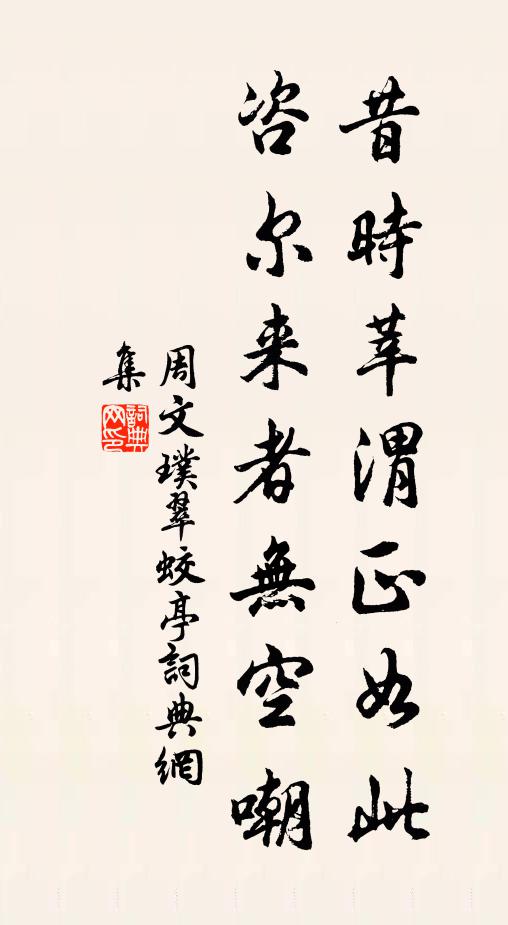 昔時莘渭正如此
咨尔来者無空嘲
周文璞翠蛟亭詞典網
集
詞典网印